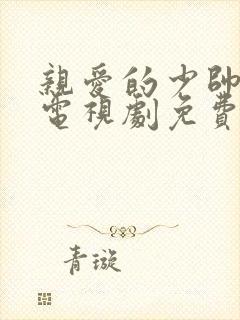 親愛的少帥
電視劇免費
青璇